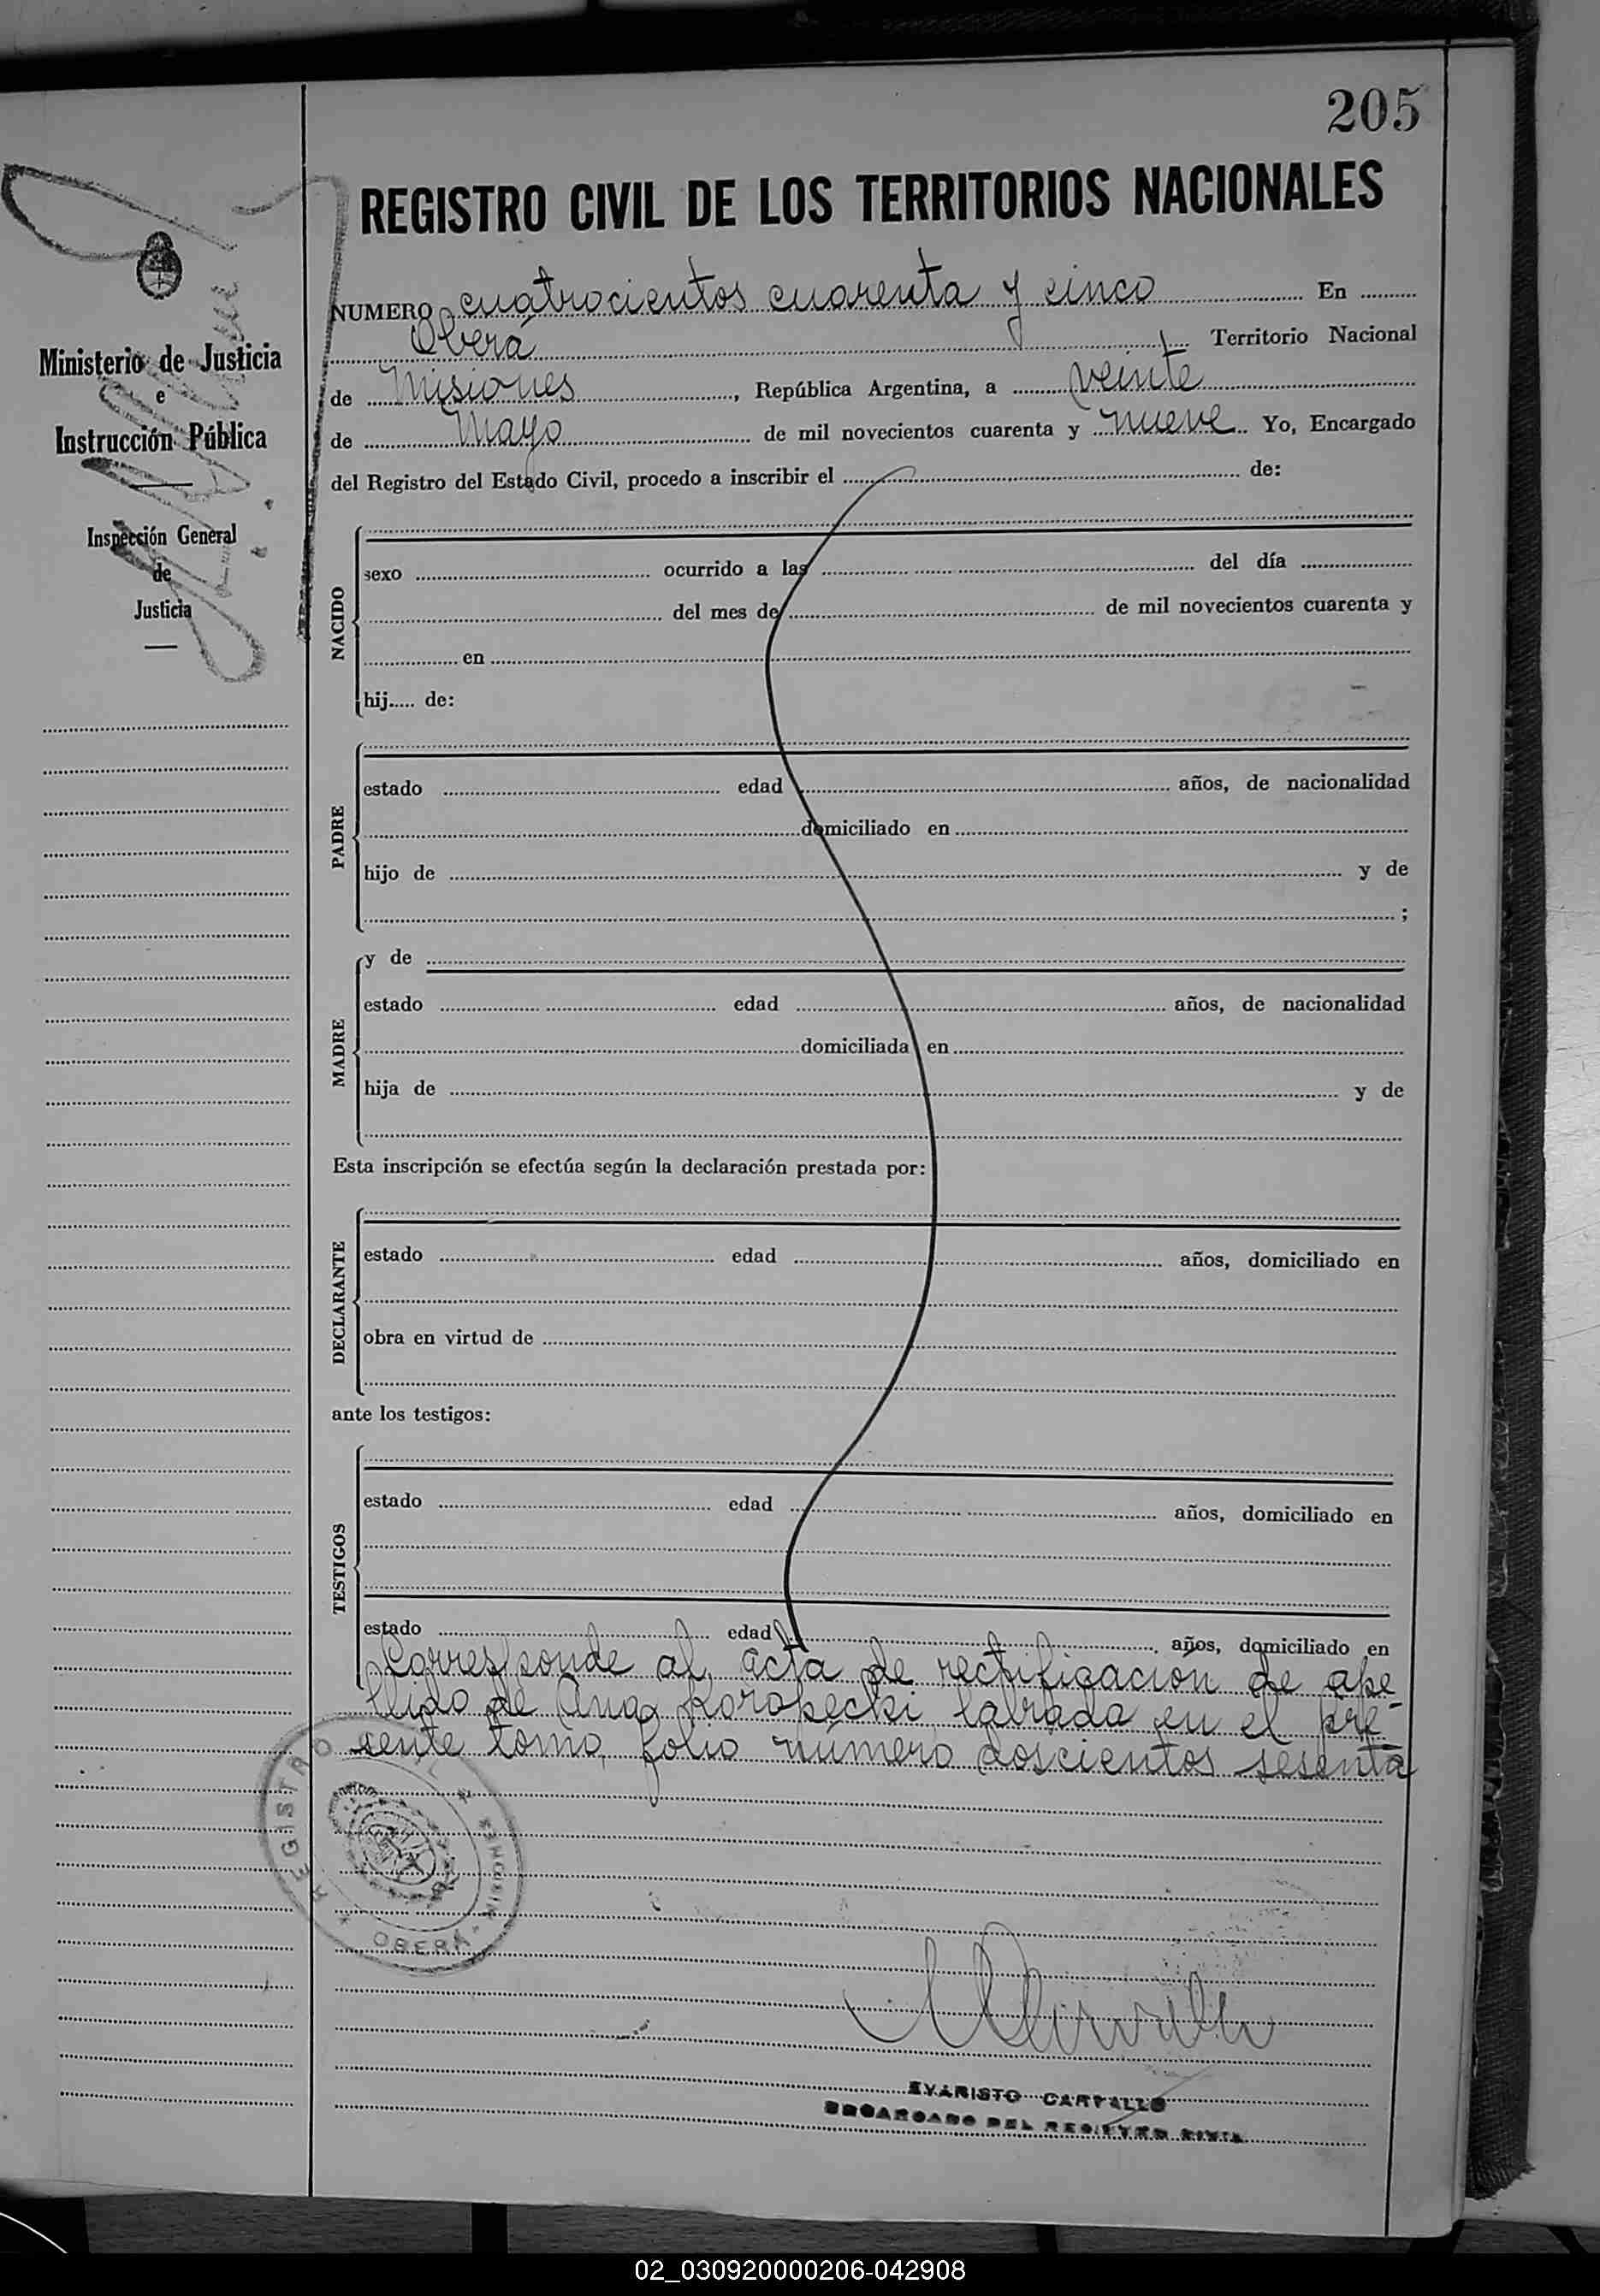 205
REGISTRO CIVIL DE LOS TERRITORIOS NACIONALES
Ministerio de Justicia
e
Instrucción Pública
Inspección General
de
Justicia
NUMERO cuatrocientos cuarenta y cinco En
Oberá Territorio Nacional
de Misiones, República Argentina, a veinte
de Mayo de mil novecientos cuarenta y nueve Yo, Encargado
del Registro del Estado Civil, procedo a inscribir el de:
NACIDO
sexo ocurrido a las del día
del mes de de mil novecientos cuarenta y
en
hij..... de:
PADRE
estado edad años, de nacionalidad
domiciliado en
hijo de y de
;
MADRE
y de
estado edad años, de nacionalidad
domiciliada en
hija de y de
Esta inscripción se efectúa según la declaración prestada por:
DECLARANTE
estado edad años, domiciliado en
obra en virtud de
ante los testigos:
TESTIGOS
estado edad años, domiciliado en
estado edad años, domiciliado en
Corresponde al acta de rectificación de ape-
llido de Ana Koropecki labrada en el pre-
sente tomo, folio número doscientos sesenta
REGISTRO CIVIL * MISIONES - OBERÁ *
EVARISTO CARVALLO
ENCARGADO DEL REGISTRO CIVIL
02_030920000206-042908